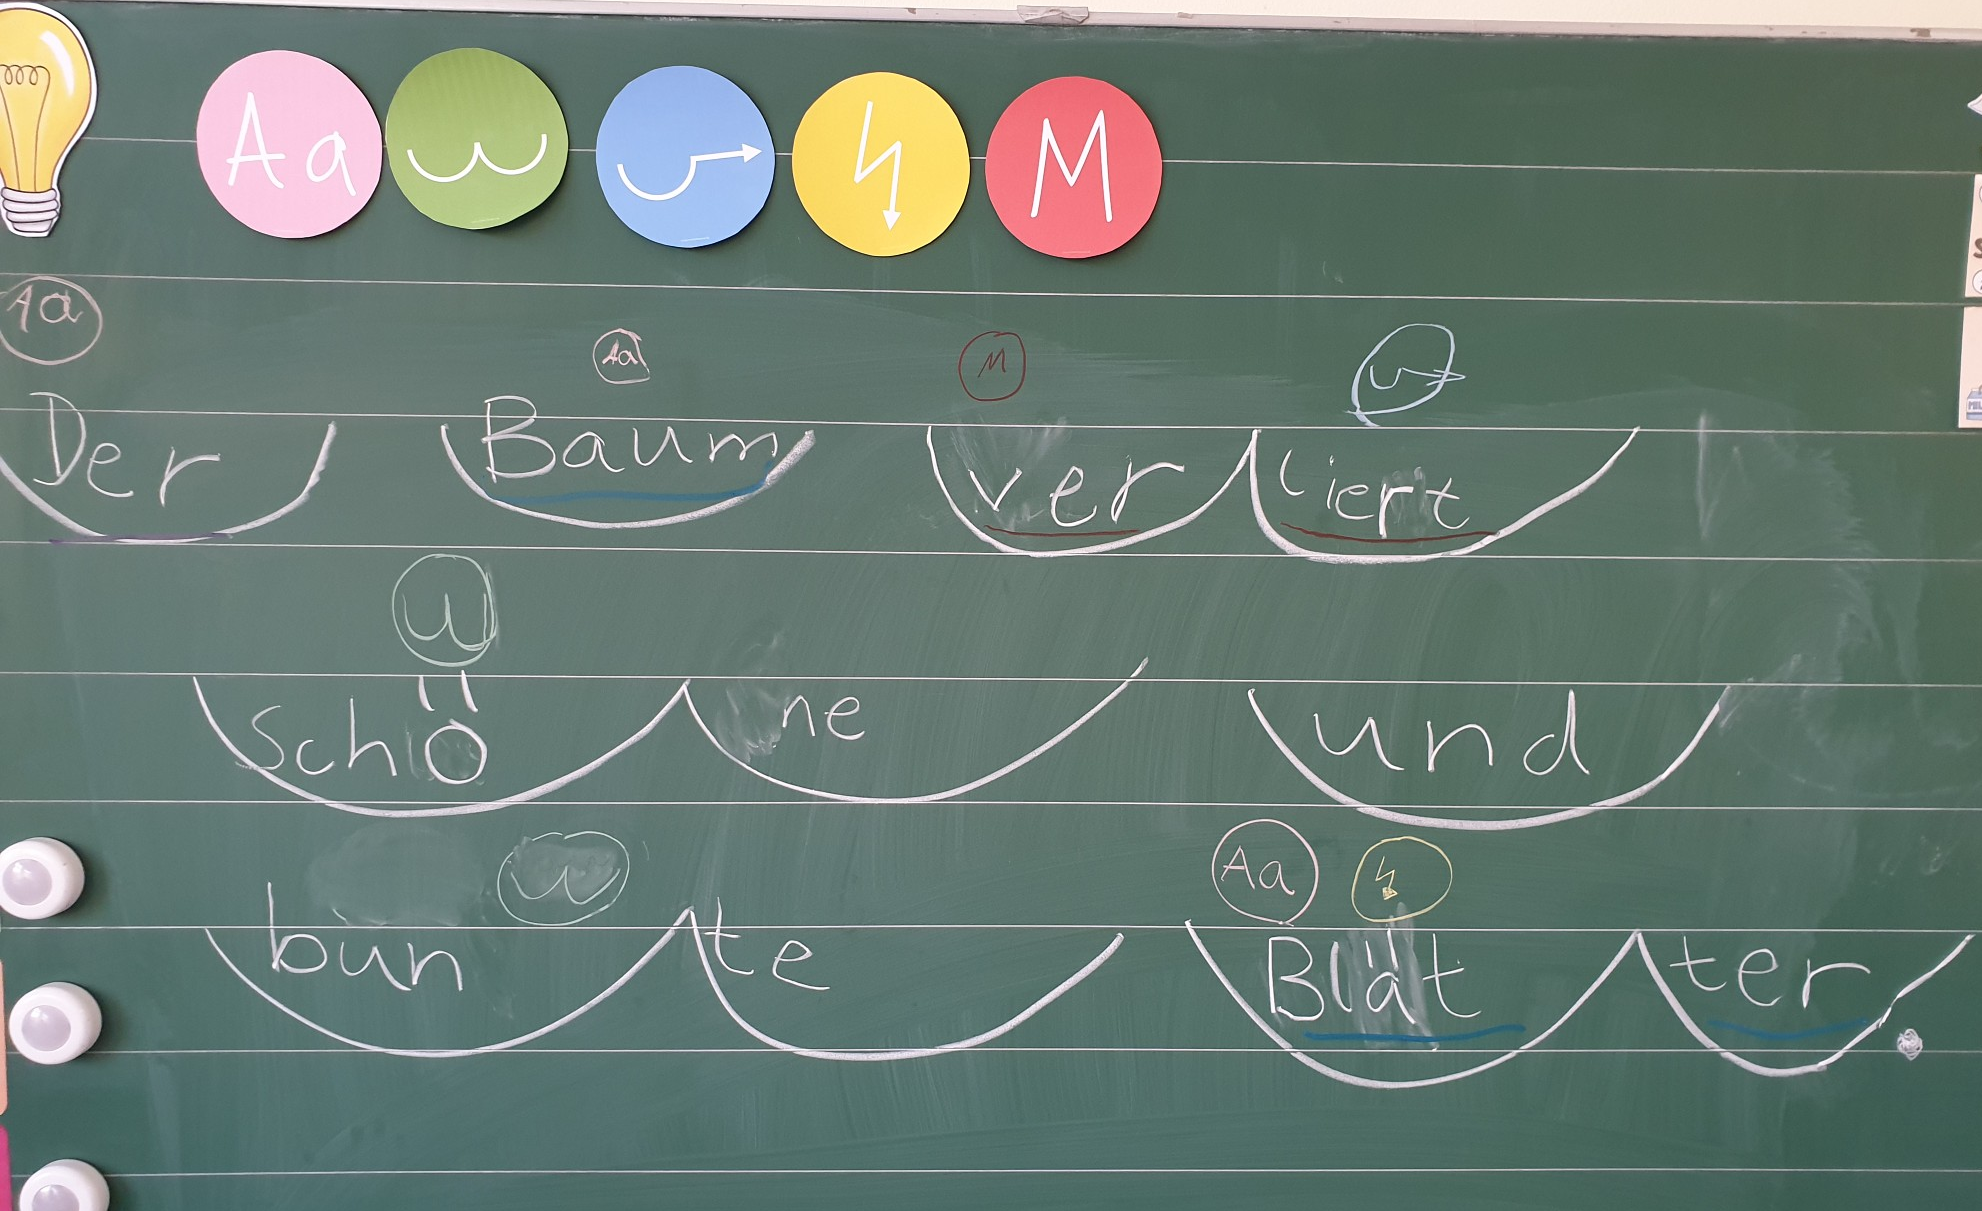 Aa M
Aa Aa M
Der Baum verliert
schöne und
Aa
bunte Blätter.